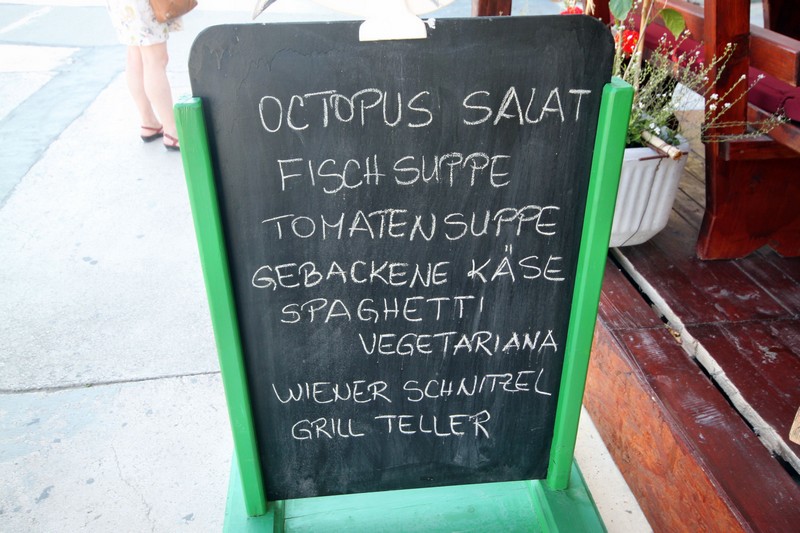 OCTOPUS SALAT
FISCHSUPPE
TOMATENSUPPE
GEBACKENE KÄSE
SPAGHETTI
VEGETARIANA
WIENER SCHNITZEL
GRILL TELLER